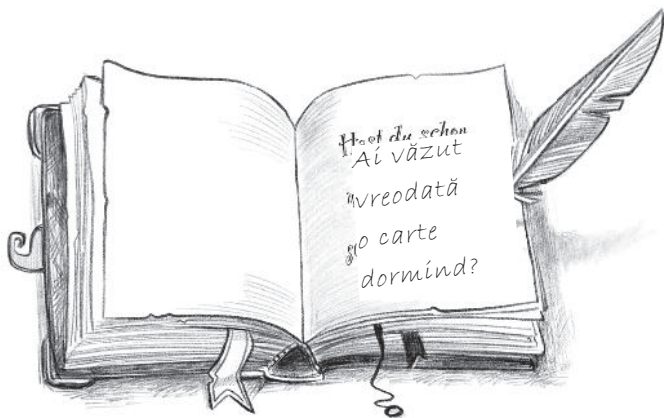 Hast du schon
Ai văzut
vreodată
o carte
dormind?